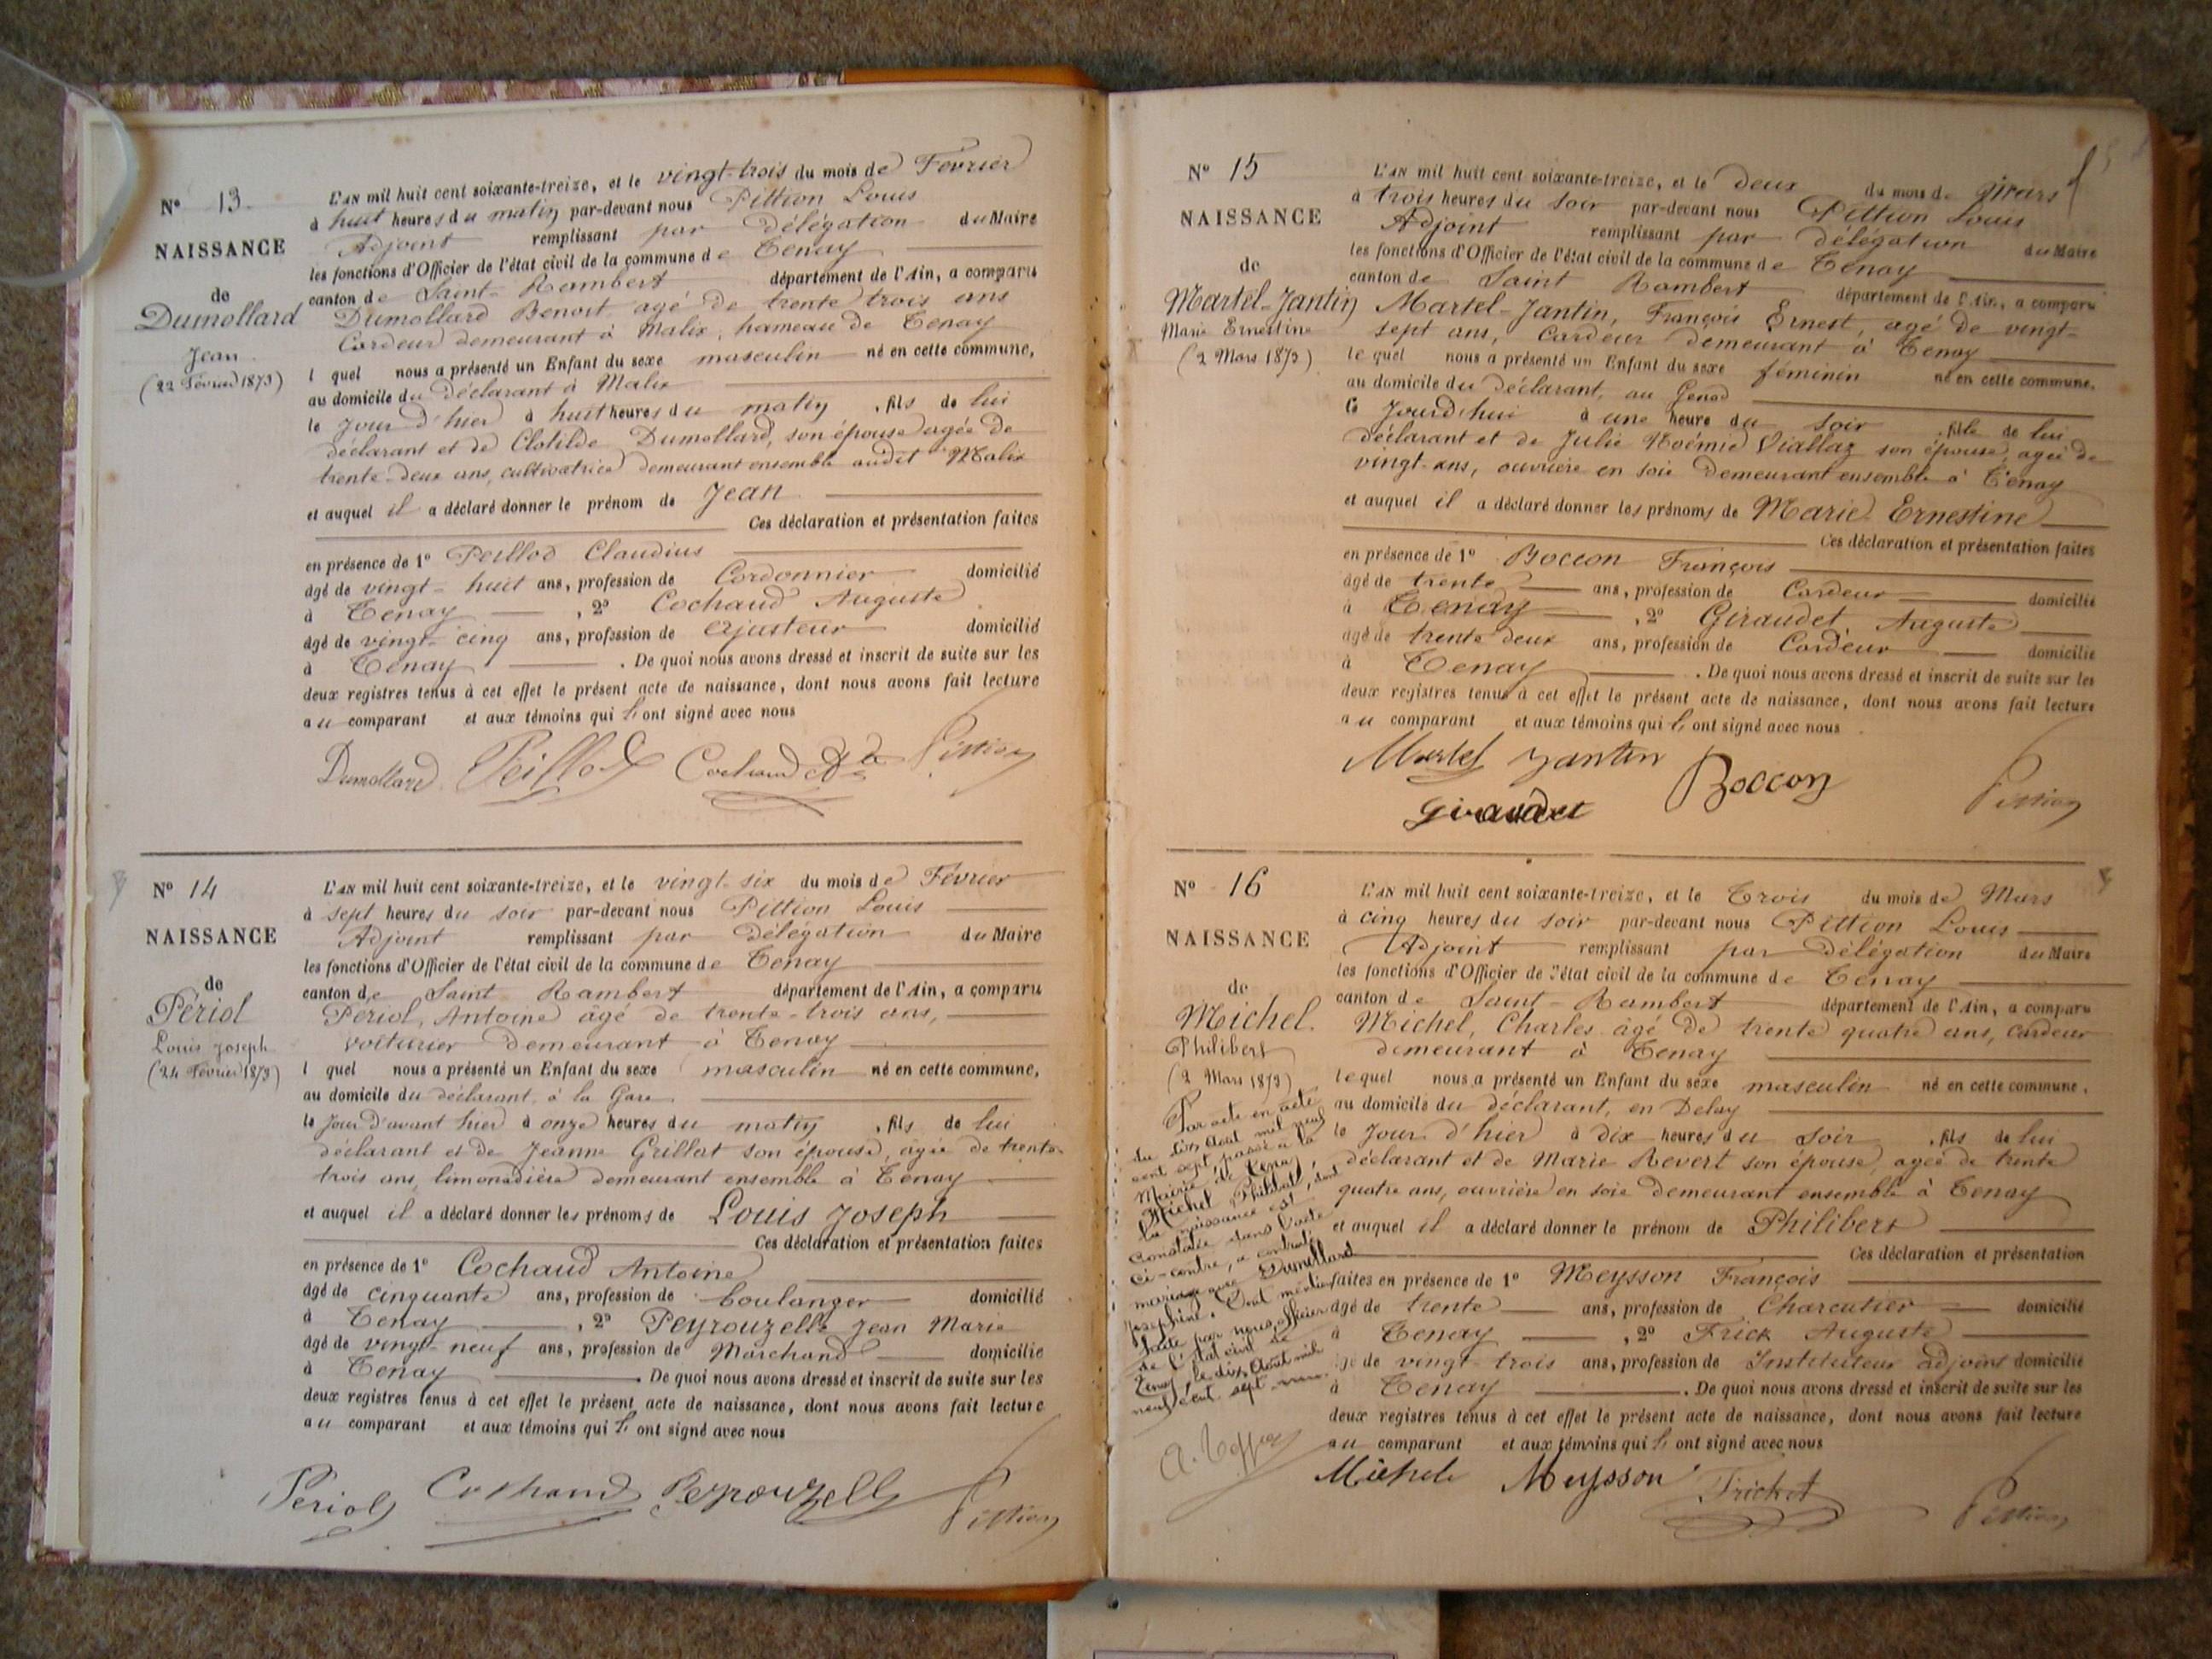 N° 13
NAISSANCE
de
Dumollard
Jean
(22 Février 1873)
L'AN mil huit cent soixante-treize, et le vingt-trois du mois de Février
à huit heures du matin par-devant nous Pittion Louis
Adjoint remplissant par délégation du Maire
les fonctions d'Officier de l'état civil de la commune de Tenay
canton de Saint-Rambert département de l'Ain, a comparu
Dumollard Benoit agé de trente trois ans
Cardeur demeurant à Malix, hameau de Tenay
l quel nous a présenté un Enfant du sexe masculin né en cette commune,
au domicile du déclarant à Malix
le jour d'hier à huit heures du matin, fils de lui
déclarant et de Clotilde Dumollard, son épouse agée de
trente-deux ans, cultivatrice demeurant ensemble audit Malix
et auquel il a déclaré donner le prénom de Jean
Ces déclaration et présentation faites
en présence de 1° Peillod Claudius
âgé de vingt-huit ans, profession de Cordonnier domicilié
à Tenay, 2° Cochaud Auguste
âgé de vingt-cinq ans, profession de Ajusteur domicilié
à Tenay. De quoi nous avons dressé et inscrit de suite sur les
deux registres tenus à cet effet le présent acte de naissance, dont nous avons fait lecture
au comparant et aux témoins qui l'ont signé avec nous
Dumollard Peillod Cochaud Pittion
N° 14
NAISSANCE
de
Périol
Louis Joseph
(24 Février 1873)
L'AN mil huit cent soixante-treize, et le vingt-six du mois de Février
à sept heures du soir par-devant nous Pittion Louis
Adjoint remplissant par délégation du Maire
les fonctions d'Officier de l'état civil de la commune de Tenay
canton de Saint Rambert département de l'Ain, a comparu
Périol, Antoine âgé de trente-trois ans,
voiturier demeurant à Tenay
l quel nous a présenté un Enfant du sexe masculin né en cette commune,
au domicile du déclarant, à la Gare
le jour d'avant hier à onze heures du matin, fils de lui
déclarant et de Jeanne Grillat son épouse, agée de trente-
trois ans, limonadière demeurant ensemble à Tenay
et auquel il a déclaré donner les prénoms de Louis Joseph
Ces déclaration et présentation faites
en présence de 1° Cochaud Antoine
âgé de cinquante ans, profession de boulanger domicilié
à Tenay, 2° Peyrouzelle Jean Marie
âgé de vingt-neuf ans, profession de Marchand domicilié
à Tenay. De quoi nous avons dressé et inscrit de suite sur les
deux registres tenus à cet effet le présent acte de naissance, dont nous avons fait lecture
au comparant et aux témoins qui l'ont signé avec nous
Periol Cochaud Peyrouzelle Pittion
N° 15
NAISSANCE
de
Martel-Jantin
Marie Ernestine
(2 Mars 1873)
L'AN mil huit cent soixante-treize, et le deux du mois de Mars
à trois heures du soir par-devant nous Pittion Louis
Adjoint remplissant par délégation du Maire
les fonctions d'Officier de l'état civil de la commune de Tenay
canton de Saint Rambert département de l'Ain, a comparu
Martel-Jantin, François Ernest, agé de vingt-
sept ans, Cardeur demeurant à Tenay
lequel nous a présenté un Enfant du sexe féminin né en cette commune,
au domicile du déclarant, au Genod
ce jourd'hui à une heure du soir, fille de lui
déclarant et de Julie Noémie Viallaz son épouse, agée de
vingt-ans, ouvrière en soie demeurant ensemble à Tenay
et auquel il a déclaré donner les prénoms de Marie-Ernestine
Ces déclaration et présentation faites
en présence de 1° Boccon François
âgé de trente ans, profession de Cardeur domicilié
à Tenay, 2° Giraudet, Auguste
âgé de trente deux ans, profession de Cardeur domicilié
à Tenay. De quoi nous avons dressé et inscrit de suite sur les
deux registres tenus à cet effet le présent acte de naissance, dont nous avons fait lecture
au comparant et aux témoins qui l'ont signé avec nous
Martel Jantin Boccon
Giraudet Pittion
N° 16
NAISSANCE
de
Michel
Philibert
(2 Mars 1873)
Par acte en date
du dix Août mil neuf
cent sept, passé à la
Mairie de Tenay
Michel Philibert, dont
la naissance est
constatée dans l'acte
ci-contre, a contracté
mariage avec Dumollard
Joséphine. Dont mention
faite par nous, officier
de l'état civil de
Tenay, le dix Août mil
neuf cent sept
L'AN mil huit cent soixante-treize, et le Trois du mois de Mars
à cinq heures du soir par-devant nous Pittion Louis
Adjoint remplissant par délégation du Maire
les fonctions d'Officier de l'état civil de la commune de Tenay
canton de Saint-Rambert département de l'Ain, a comparu
Michel, Charles âgé de trente quatre ans, cardeur
demeurant à Tenay
lequel nous a présenté un Enfant du sexe masculin né en cette commune,
au domicile du déclarant, en Delay
le jour d'hier à dix heures du soir, fils de lui
déclarant et de Marie Revert son épouse, agée de trente
quatre ans, ouvrière en soie demeurant ensemble à Tenay
et auquel il a déclaré donner le prénom de Philibert
Ces déclaration et présentation
faites en présence de 1° Meysson François
âgé de trente ans, profession de Charcutier domicilié
à Tenay, 2° Frick Auguste
âgé de vingt-trois ans, profession de Instituteur adjoint domicilié
à Tenay. De quoi nous avons dressé et inscrit de suite sur les
deux registres tenus à cet effet le présent acte de naissance, dont nous avons fait lecture
au comparant et aux témoins qui l'ont signé avec nous
Michel Meysson Pittion